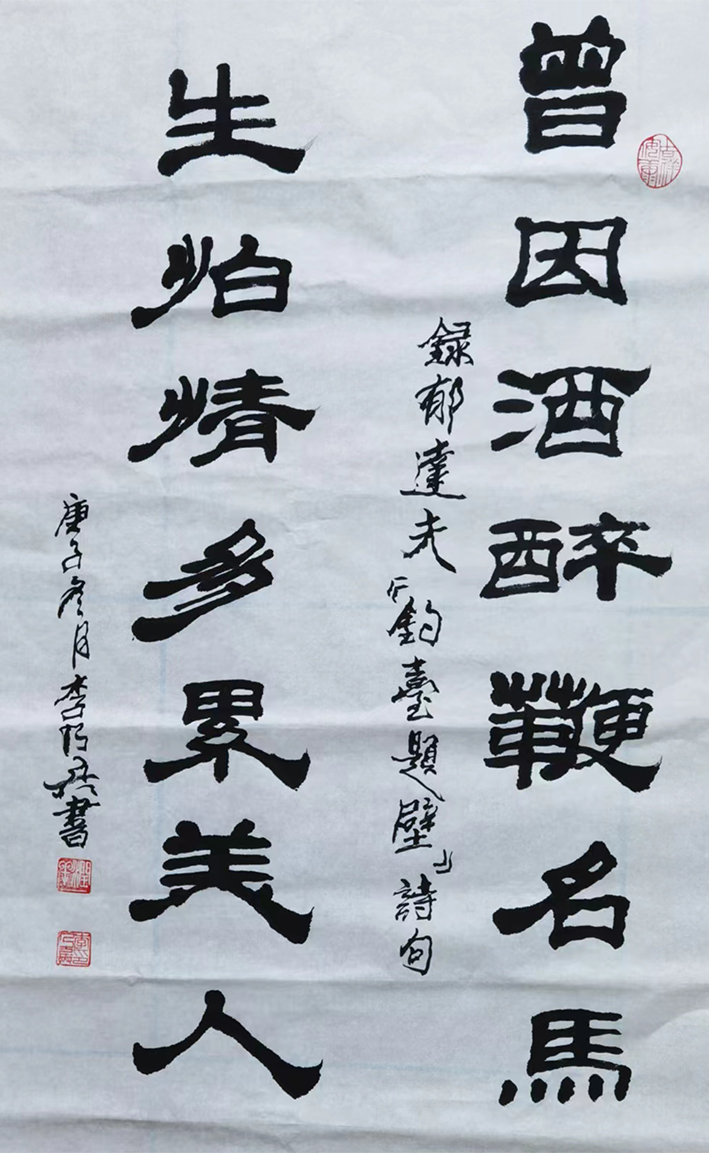 曾因酒醉鞭名馬
錄郁達夫「釣臺題壁」詩句
生怕情多累美人
庚子冬月李
書